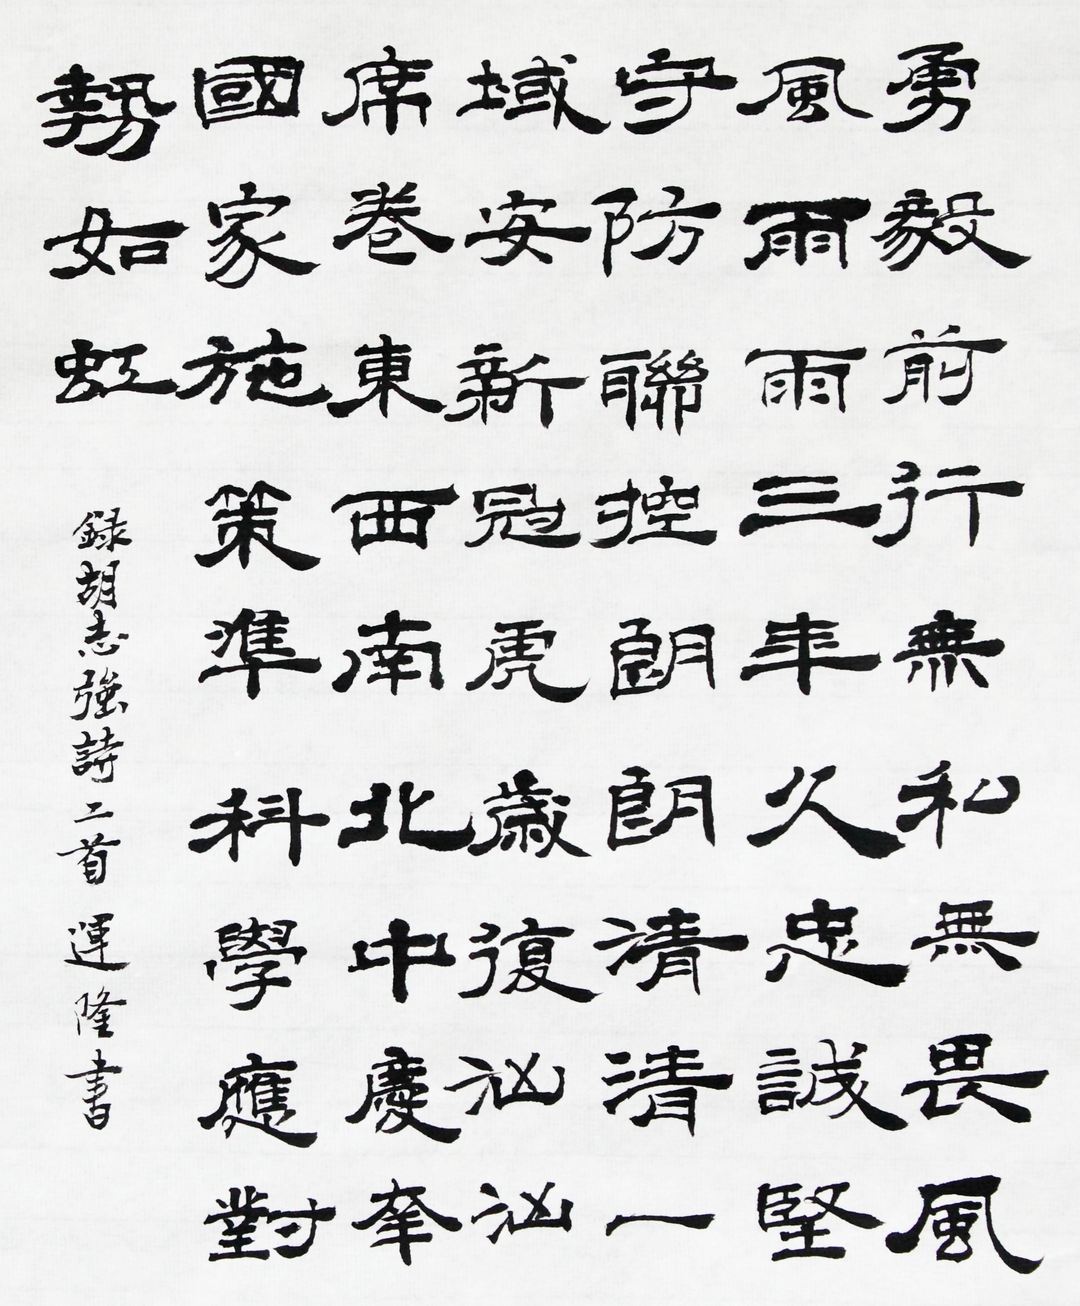 勇毅前行無私無畏風
風雨雨三年久忠誠堅
守防聯控朗朗清清一
域安新冠虎歲復汹汹
席卷東西南北中慶幸
國家施策準科學應對
勢如虹
録胡志強詩二首運隆書